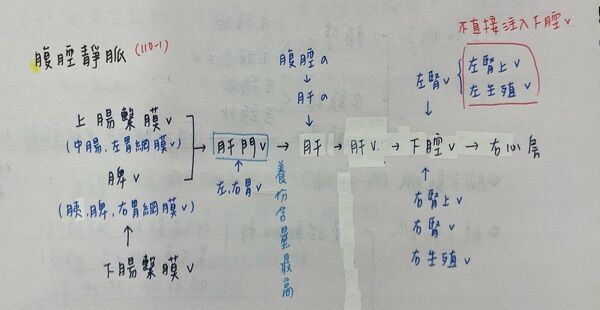 腹腔靜脈 (110-1)
不直接注入下腔v.
腹腔a
↓
肝a
↓
左腎v { 左腎上v
左生殖v
↓
上腸繫膜v
(中腸、左胃網膜v)
脾v
(胰、脾、右胃網膜v)
↑
下腸繫膜v
→ 肝門v → 肝 → 肝v. → 下腔v → 右心房
↑
左,右胃v
養份含量最高
↑
右腎上v
右腎v
右生殖v